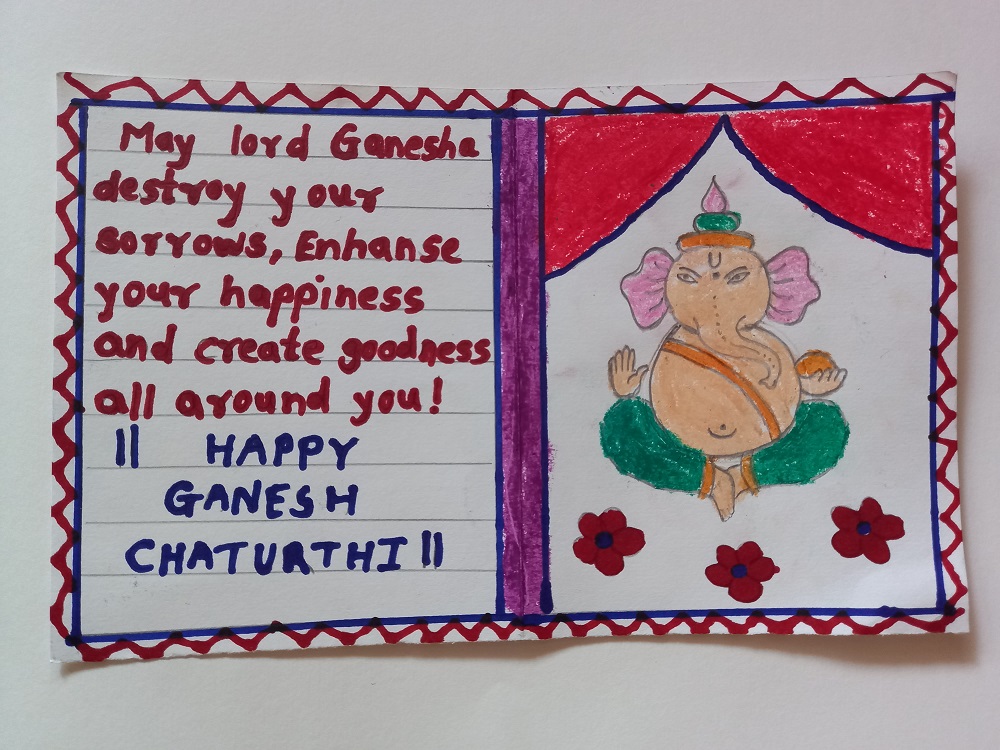 May lord Ganesha
destroy your
sorrows, Enhanse
your happiness
and create goodness
all around you!
|| HAPPY
GANESH
CHATURTHI ||